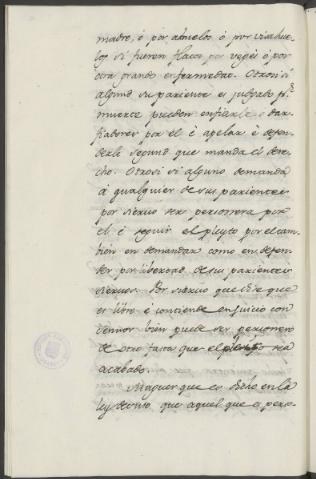 madre, ó por abuelos ó por visabue-
los si fueren flacos por vegés ó por
otra grande enfermedat. Otrosi si
algund su pariente es judgado p.ª
muerte pueden enfiarle o dar
fiadores por él é apelar é defen-
derle segund que manda el dere-
cho. Otrosi si alguno demanda
á qualquier de sus parientes
por siervo ser personero por
él é seguir el pleyto por el tam-
bien en demandar como en defen-
der por libertad de su pariente
siervo. Por siervo que dise que
es libre é contiende en juicio con
sennor bien puede ser personero
de otro fasta que el pleyto sea
acabado.
Maguer que es dicho en la
ley de suso, que aquel que es perso-